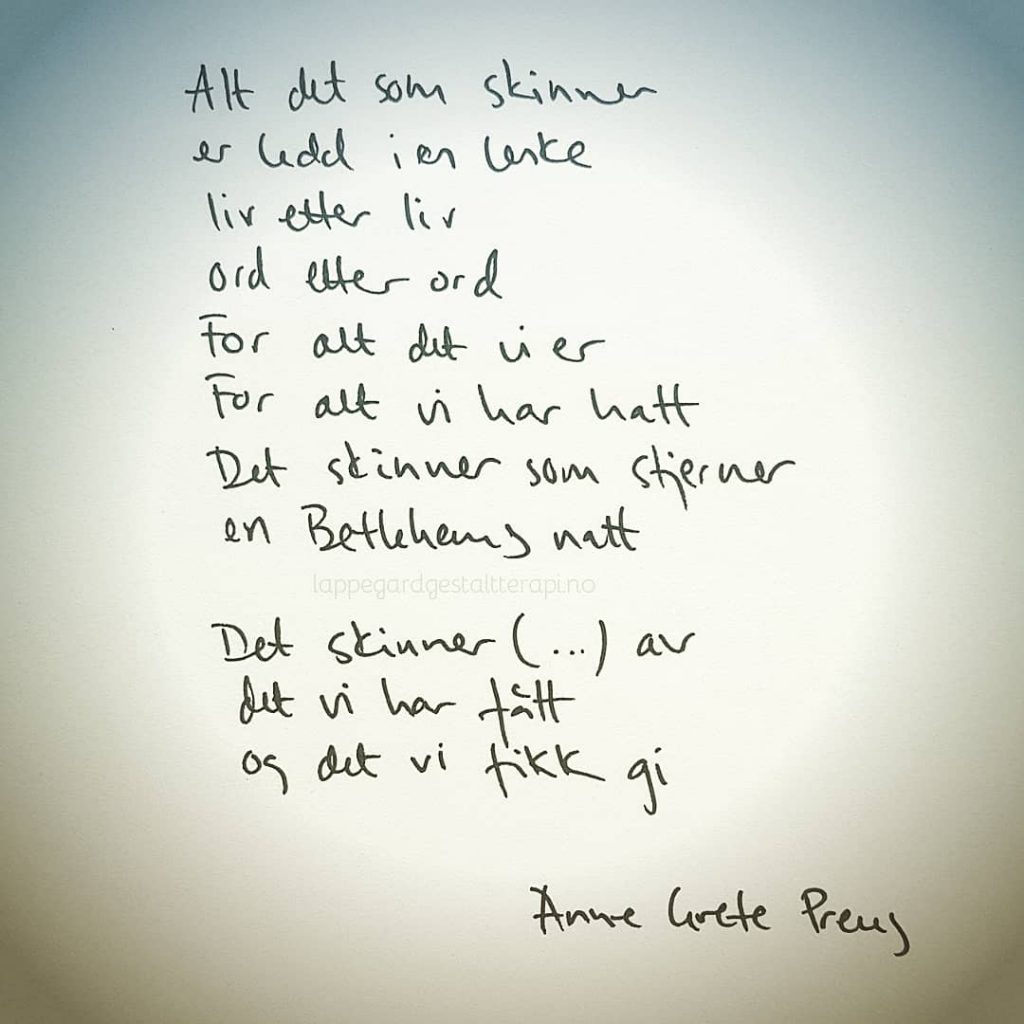 Alt det som skinner
er ledd i en lenke
liv etter liv
ord etter ord
For alt det vi er
For alt vi har hatt
Det skinner som stjerner
en Betlehems natt
lappegardgestaltterapi.no
Det skinner (...) av
det vi har fått
og det vi fikk gi
Anne Grete Preus